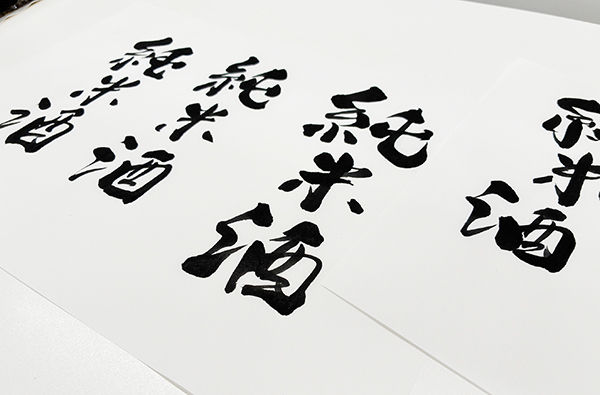 純米酒
純米酒
純米酒
純米酒